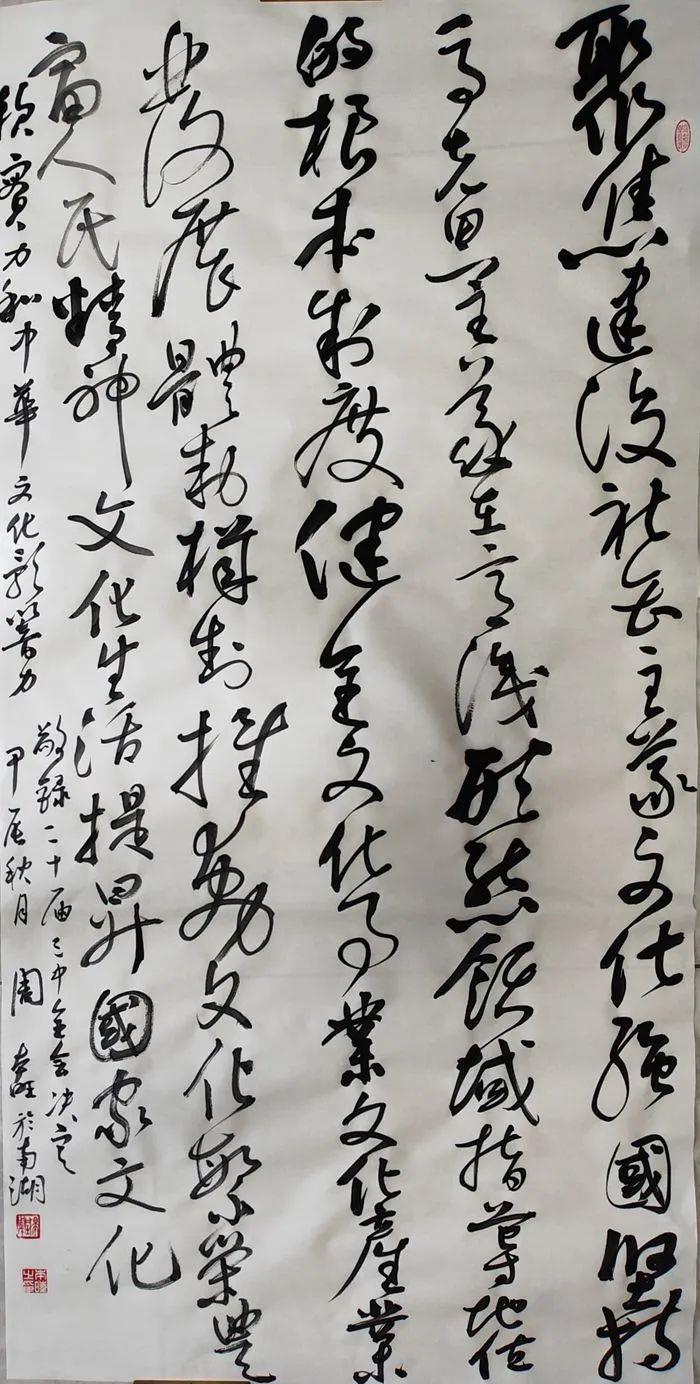 聚焦建设社会主义文化強國堅持
马克思主义在意识形态领域指導地位
的根本制度健全文化事業文化產業
發展體制機制推動文化繁榮豐
富人民精神文化生活提昇國家文化
軟實力和中華文化影響力
敬錄二十届三中全会决定
甲辰秋月周於南湖